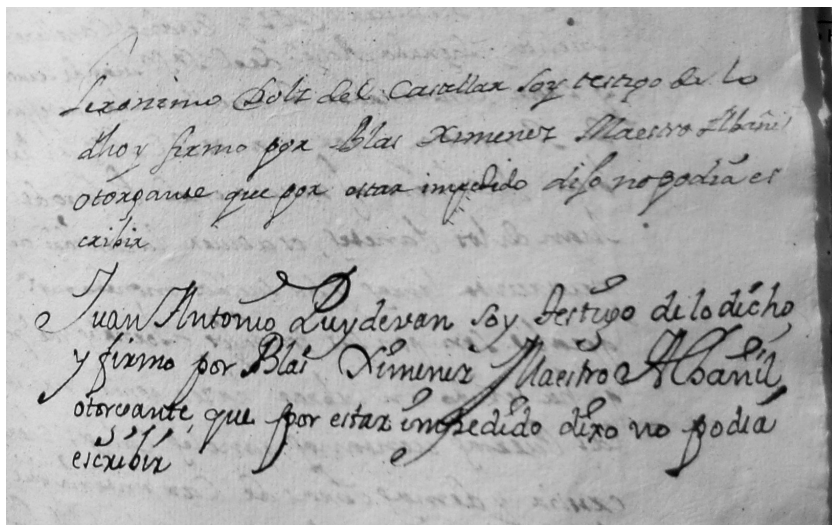 Geronimo Dolz del Castellar soy testigo de lo
dho y firmo por Blas Ximenez Maestro Albañil
otorgante que por estar impedido dijo no podia es
cribir
Juan Antonio Puydevan soy testigo de lo dicho
y firmo por Blas Ximenez Maestro Albañil
otorgante que por estar impedido dixo no podia
escribir